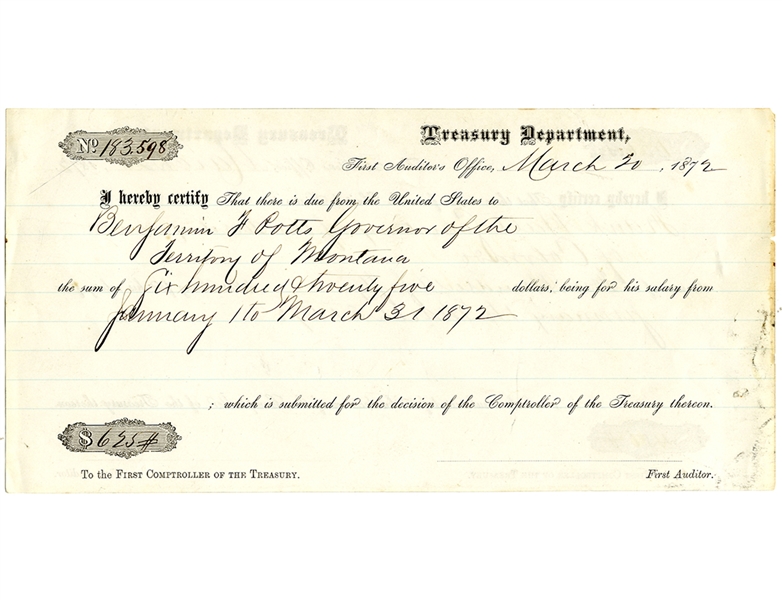 Treasury Department,
No 183.598
First Auditor's Office, March 20, 1872
I hereby certify That there is due from the United States to
Benjamin F Potts Governor of the
Territory of Montana
the sum of Six hundred & twenty five dollars, being for his salary from
January 1 to March 31 1872
; which is submitted for the decision of the Comptroller of the Treasury thereon.
$ 625#
To the FIRST COMPTROLLER OF THE TREASURY. First Auditor.